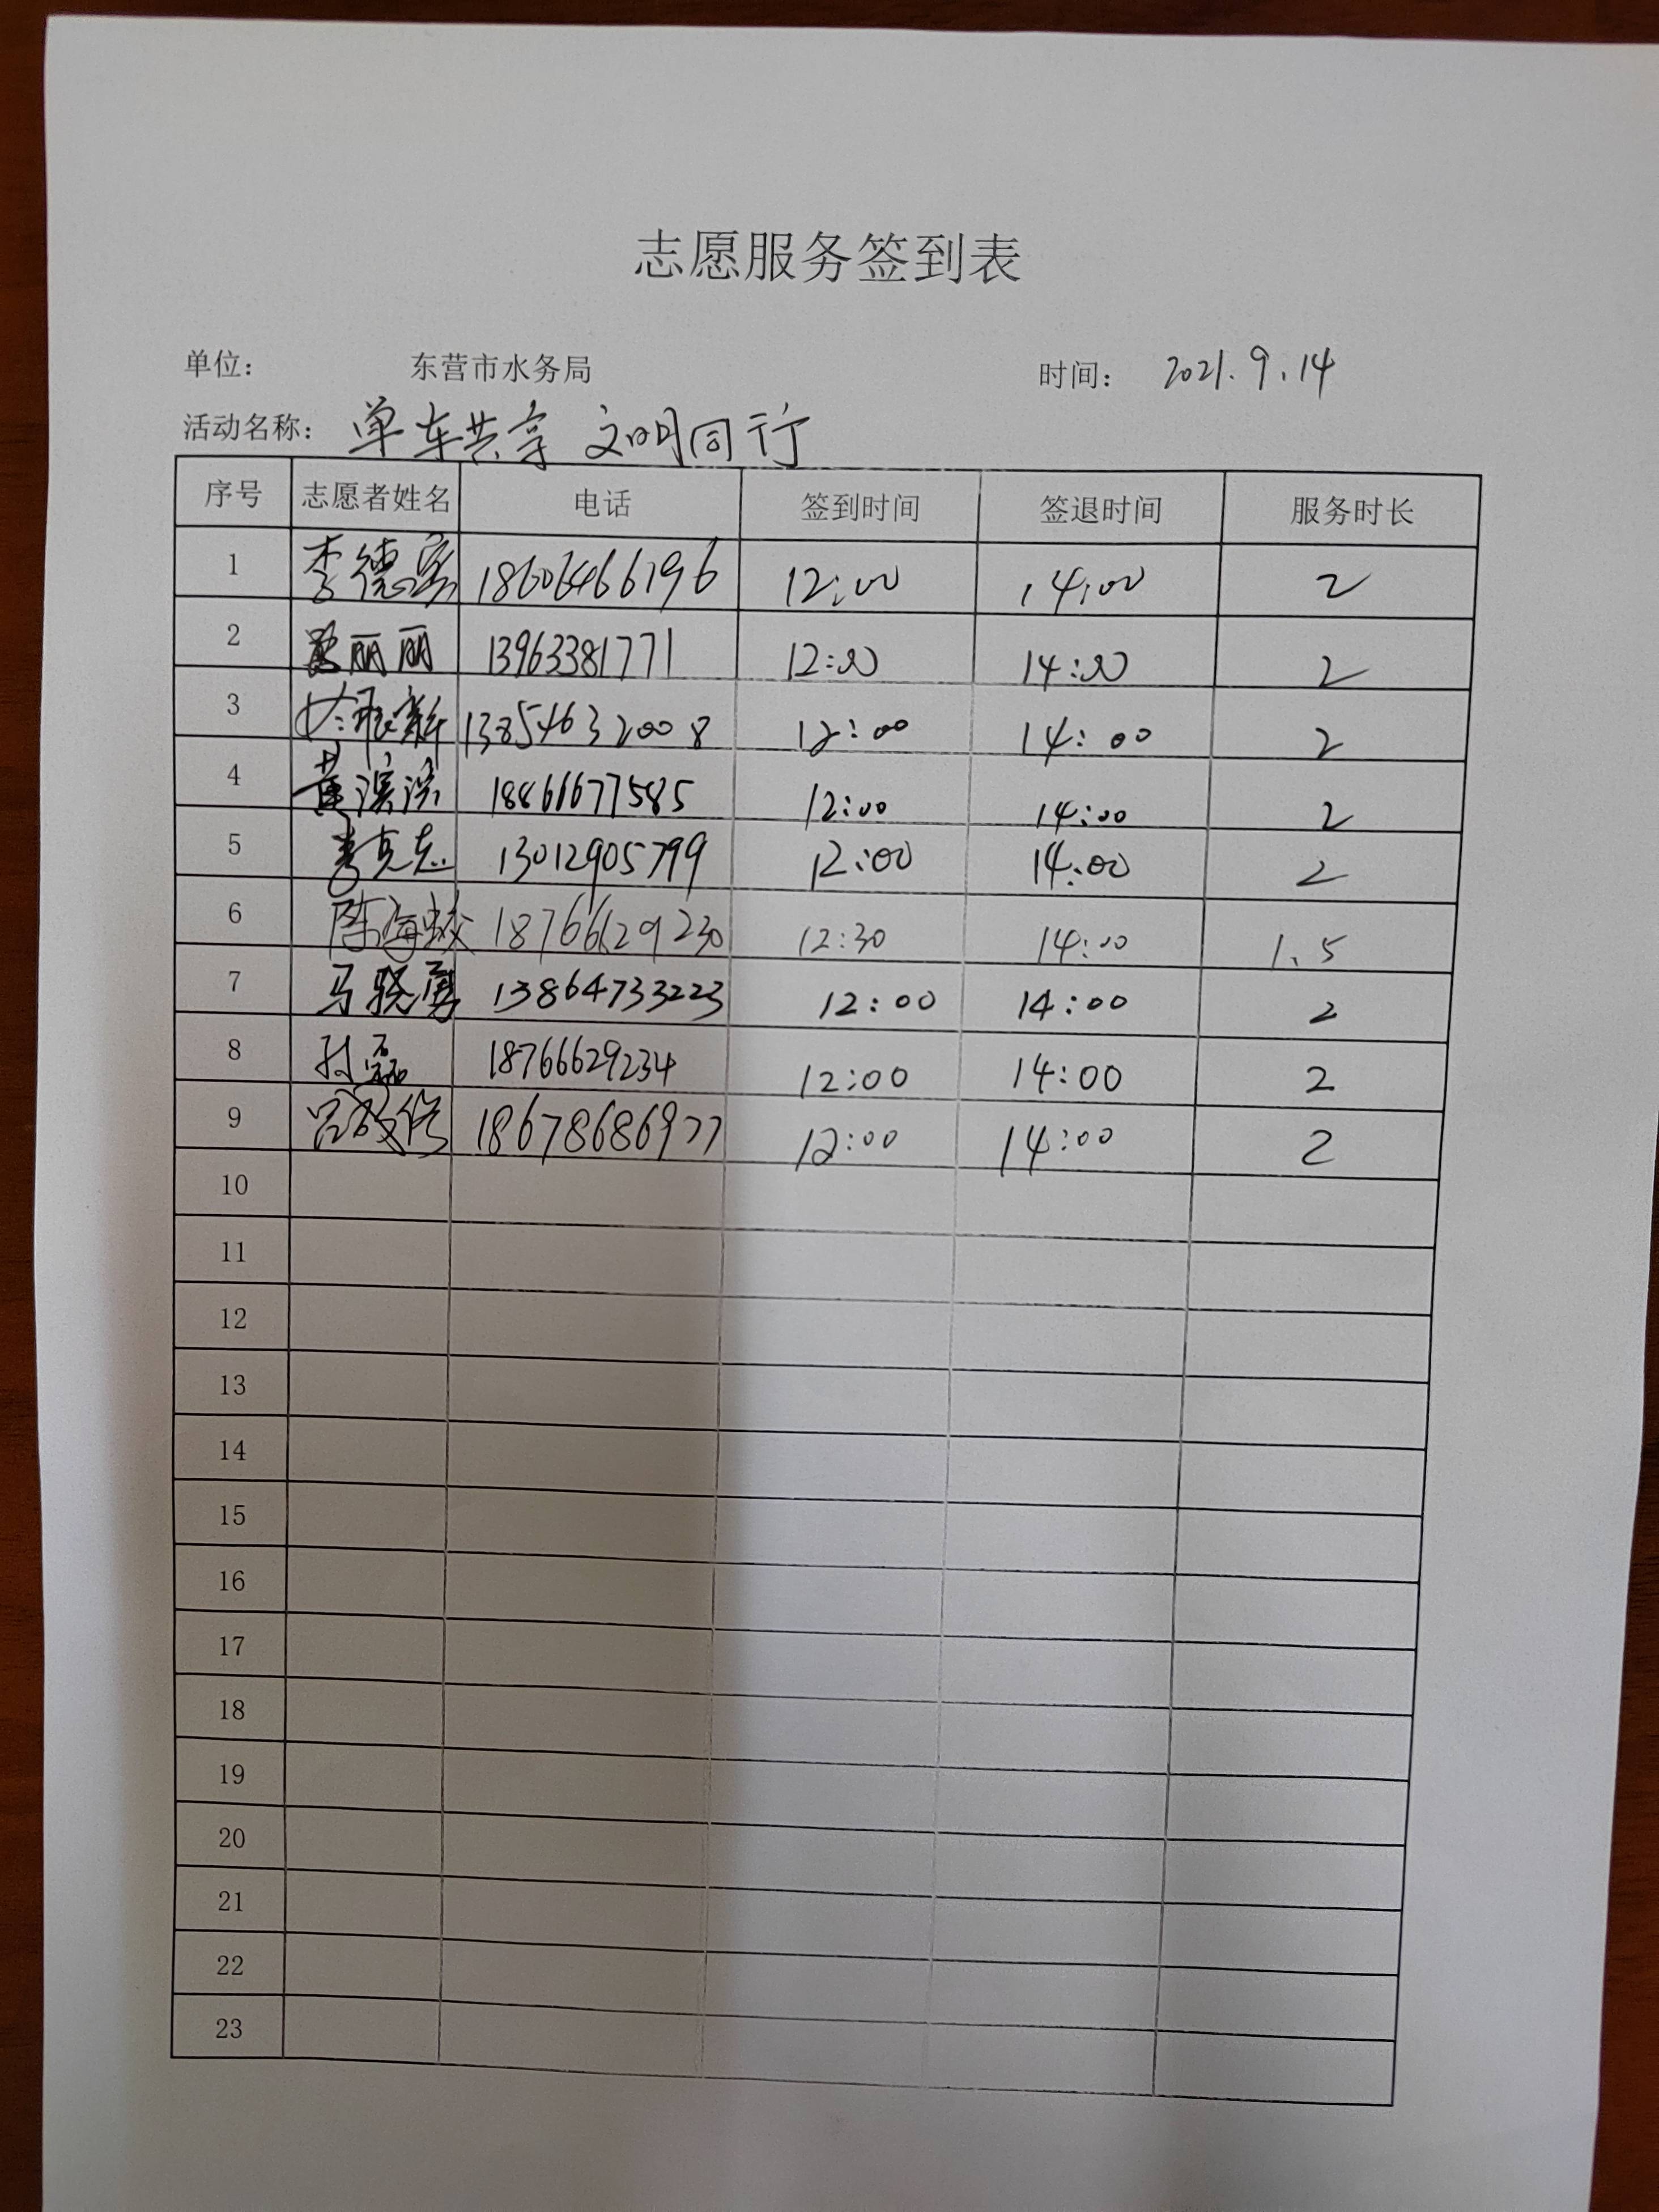 志愿服务签到表
单位： 东营市水务局 时间： 2021.9.14
活动名称： 单车共享 文明同行
序号 志愿者姓名 电话 签到时间 签退时间 服务时长
1 李德 18606466196 12:00 14:00 2
2 丽丽 13963381771 12:00 14:00 2
3 13854632008 12:00 14:00 2
4 黄滨滨 18866677585 12:00 14:00 2
5 李克志 13012905799 12:00 14:00 2
6 陈海蛟 18766629230 12:30 14:00 1.5
7 马晓勇 13864733223 12:00 14:00 2
8 孙磊 18766629234 12:00 14:00 2
9 吕 18678686977 12:00 14:00 2
10
11
12
13
14
15
16
17
18
19
20
21
22
23